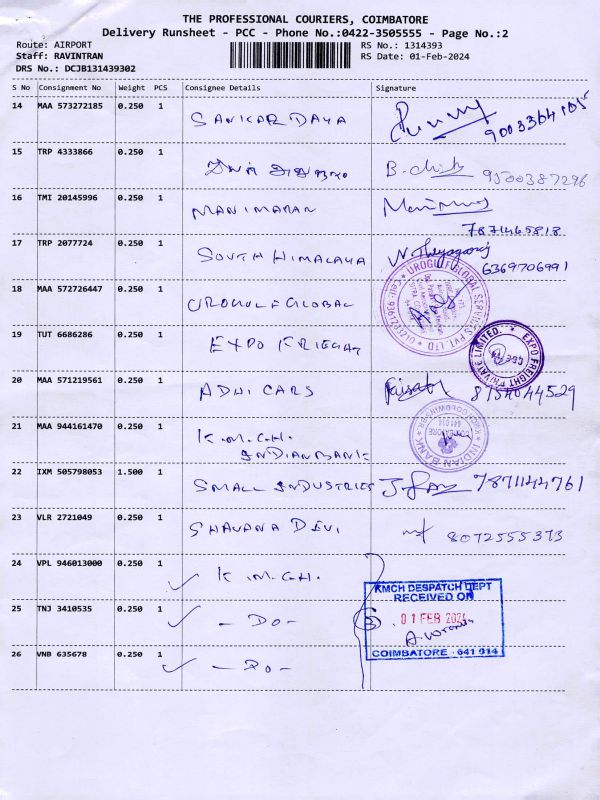 THE PROFESSIONAL COURIERS, COIMBATORE
Delivery Runsheet - PCC - Phone No.:0422-3505555 - Page No.:2
Route: AIRPORT RS No.: 1314393
Staff: RAVINTRAN RS Date: 01-Feb-2024
DRS No.: DCJB131439302
S No Consignment No Weight PCS Consignee Details Signature
14 MAA 573272185 0.250 1 SANKAR DAYA
9003364105
15 TRP 4333866 0.250 1
9500387296
16 TMI 20145996 0.250 1 MANIMARAN
7871465818
17 TRP 2077724 0.250 1 SOUTH HIMALAYA
6369706991
18 MAA 572726447 0.250 1 UROGULF GLOBAL
UROGULF GLOBAL SERVICES PVT LTD
19 TUT 6686286 0.250 1 EXPO FRIEGHT
EXPO FREIGHT PRIVATE LIMITED.
20 MAA 571219561 0.250 1 ADHI CARS
8754044529
21 MAA 944161470 0.250 1 K.M.C.H.
INDIAN BANK
INDIAN BANK
22 IXM 505798053 1.500 1 SMALL INDUSTRIES
7871144761
23 VLR 2721049 0.250 1 SHAVANA DEVI
8072555373
24 VPL 946013000 0.250 1 K.M.C.H.
KMCH DESPATCH DEPT
RECEIVED ON
25 TNJ 3410535 0.250 1 - DO -
01 FEB 2024
COIMBATORE - 641 014
26 VNB 635678 0.250 1 - DO -